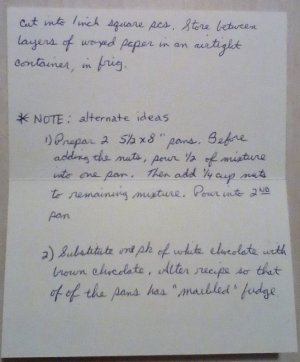 cut into 1 inch square pcs. Store between
layers of waxed paper in an airtight
container, in frig.
* NOTE: alternate ideas
1) Prepar 2 5½ x 8" pans. Before
adding the nuts, pour ½ of mixture
into one pan. Then add ¼ cup nuts
to remaining mixture. Pour into 2ND
pan
2) Substitute one pk of white chocolate with
brown chocolate. Alter recipe so that
of of the pans has "marbled" fudge